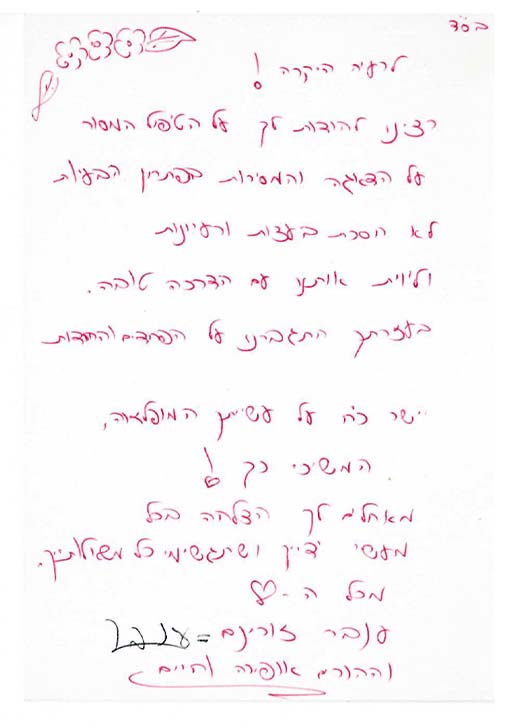 בס"ד
לרעיה היקרה!
רצינו להודות לך על הטיפול המסור
על הדאגה והמסירות בפתרון הבעיות
לא חסכת בעצות ורעיונות
וליווית אותנו עם הדרכה טובה.
בעזרתך התגברנו על הפחדים והחרדות
יישר כח על עשייתך המופלאה,
המשיכי כך!
מאחלים לך הצלחה בכל
מעשי ידייך ושיתגשימו כל משאלותייך.
מכל ה-♡
ענבר זורינם = ענבר
וההורים אופירה וחיים